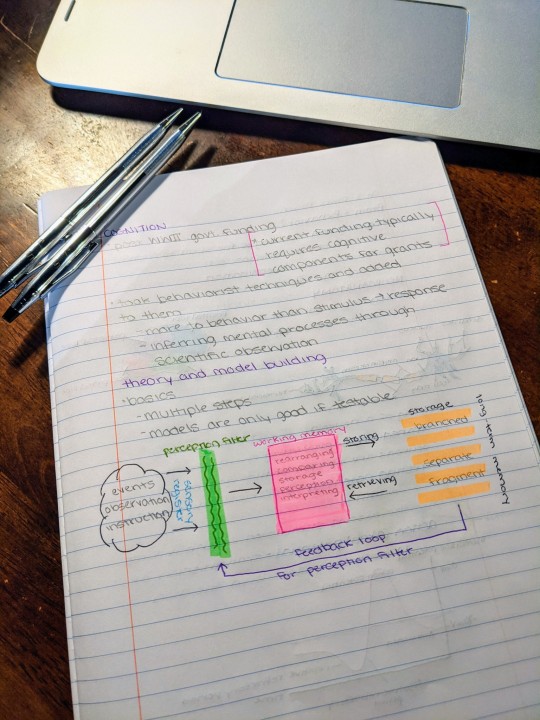 COGNITION
post WWII govt funding
* current funding typically
requires cognitive
components for grants
• took behaviorist techniques and added
to them
- more to behavior than stimulus → response
- inferring mental processes through
scientific observation
theory and model building
• basics
- multiple steps
- models are only good if testable
perception filter
working memory
storing
storage
branched
separate
fragment
rearranging
comparing
storage
perception
interpreting
retrieving
events
observation
instruction
sensory
register
feedback loop
for perception filter